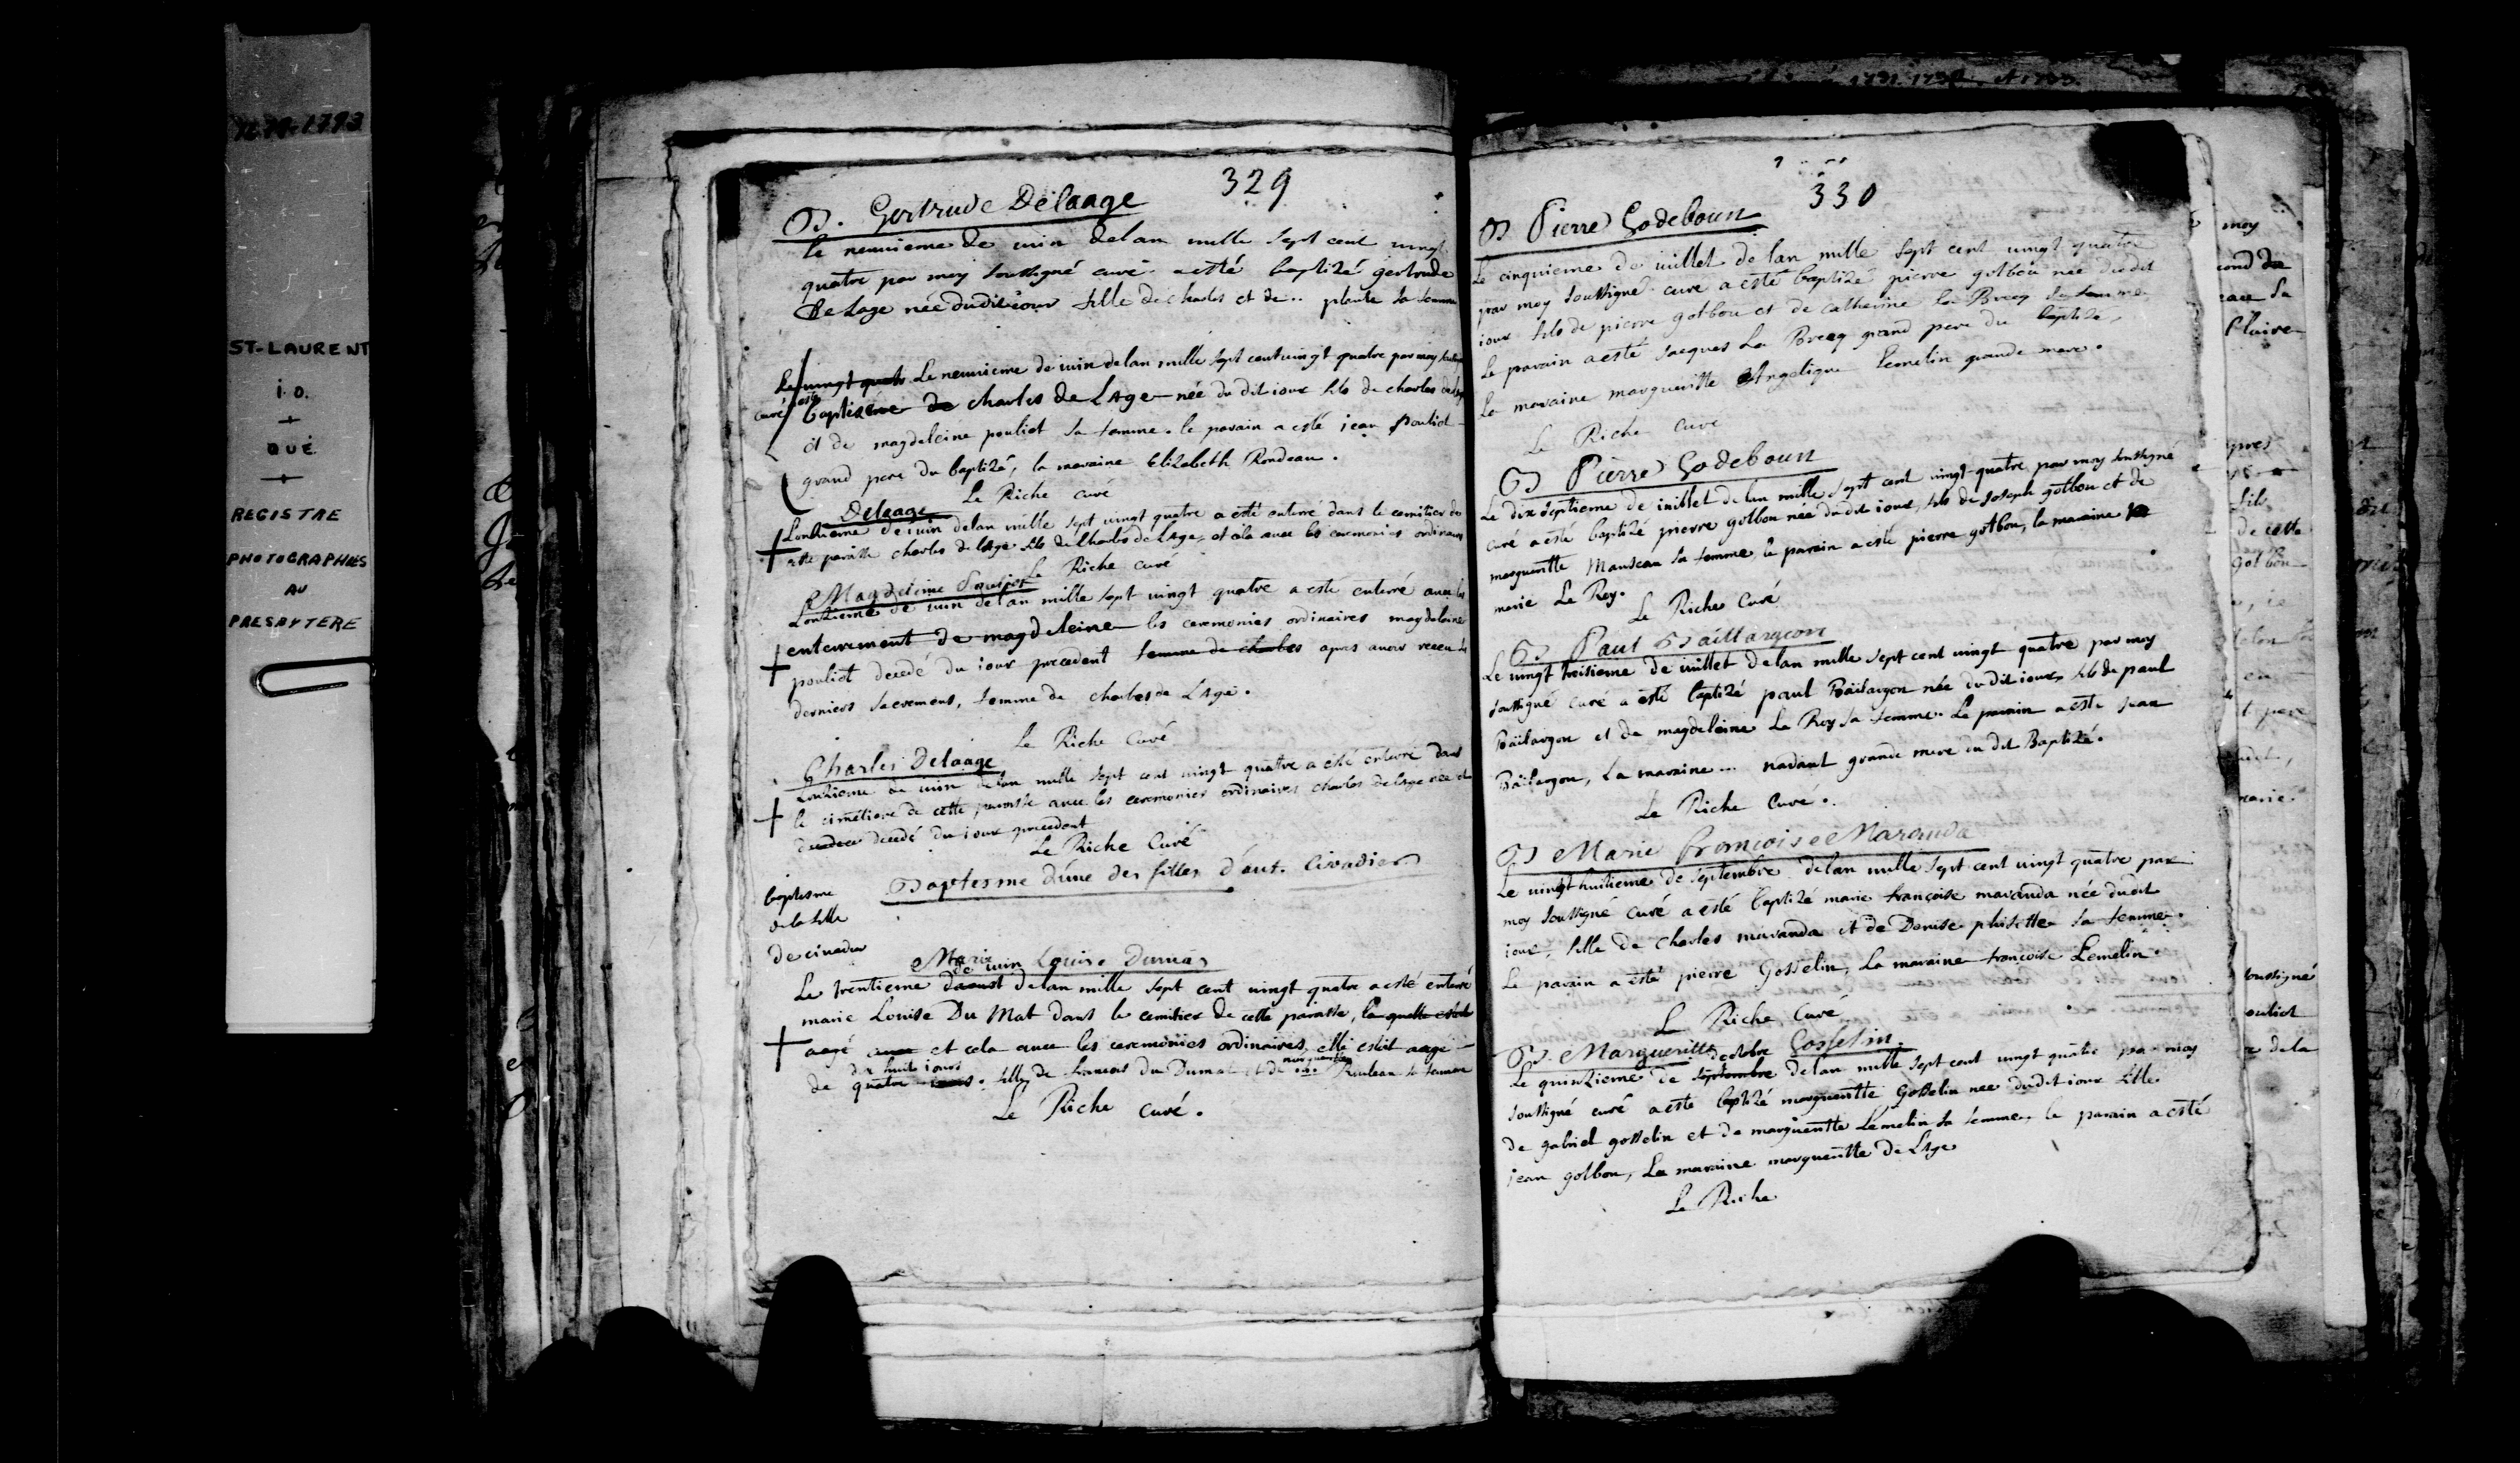 1679-1793
ST-LAURENT
i.o.
QUÉ.
REGISTRE
PHOTOGRAPHIÉS
AU
PRESBYTERE
1791. 1792. et 1793.
329
B. Gertrude Delaage
le neuvieme de iuin delan mille sept cent vingt
quatre par moy soussigné curé a esté baptizé gertrude
De Lage née dudit iour fille de charles et de .. plante sa femme
Le vingt quatr Le neuvieme de iuin delan mille sept cent vingt quatre par moy
curé a esté baptizé charles de Lage née du dit iour fils de charles
et de magdeleine pouliot sa femme. le parain a esté iean Pouliot
grand pere du baptizé, la maraine Elizabeth Rondeau.
Le Riche curé
Delaage
Lonzieme de iuin delan mille sept vingt quatre a esté enterré dans le cemitier de
cette paroisse charles de lage fils de charles de Lage, et cela avec les ceremonies ordinaires
Le Riche curé
Magdeleine Pouliot
Lonzieme de iuin delan mille sept vingt quatre a esté enterré avec les
enterrement de magdeleine les ceremonies ordinaires magdeleine
pouliot decedé du iour precedent femme de charles apres avoir receu les
derniers sacremens, femme de charles de Lage.
Le Riche Curé
Charles Delaage
Lonzieme de iuin delan mille sept cent vingt quatre a esté enterré dans
le cimetiere de cette paroisse avec les ceremonies ordinaires charles delage née et
decedé du iour precedent
Le Riche Curé
Baptesme d'une des filles d'ant. Civadier
baptesme
de la fille
de civadier
Marie Louise Dumas
de iuin
Le trentieme daoust delan mille sept cent vingt quatre a esté enterré
marie Louise Du Mat dans le cemitier de cette paroisse, la quelle estoit
aagé et cela avec les ceremonies ordinaires, elle estoit aagé
dix huit iours marguerite
de quatre fille de francois du Dumat et de ... Rouleau sa femme
Le Riche curé.
330
B Pierre Godeboun
Le cinquieme de iuillet de lan mille sept cent vingt quatre
par moy soussigné curé a esté baptizé pierre gotbou née dudit
iour fils de pierre gotbou et de catherine La Brecq sa femme
Le parain a esté Jacques La Brecq grand pere du baptizé,
La maraine margueritte Angelique Lemelin grande mere.
Le Riche curé
B Pierre Godeboun
Le dix septieme de iuillet delan mille sept cent vingt quatre par moy soussigné
curé a esté baptizé pierre gotbou née du dit iour, fils de Joseph gotbou et de
margueritte Manseau sa femme, le parain a esté pierre gotbou, la maraine
marie Le Roy.
Le Riche Curé
B. Paul Baillargeon
Le vingt troisieme de iuillet delan mille sept cent vingt quatre par moy
soussigné curé a esté baptizé paul Baïlargon née du dit iour, fils de paul
Baïlargon et de magdeleine Le Roy sa femme. Le parain a esté Jean
Baïlargon, La maraine ... nadaut grande mere du dit Baptizé.
Le Riche Curé.
B Marie francoise Maranda
Le vingt huitieme de septembre delan mille sept cent vingt quatre par
moy soussigné curé a esté baptizé marie françoise maranda née dudit
iour, fille de Charles maranda et de Denise phisette sa femme.
Le parain a esté pierre Gosselin, La maraine françoise Lemelin.
Le Riche Curé
B. Margueritte Gosselin.
d'octobre
Le quinzieme de septembre delan mille sept cent vingt quatre par moy
soussigné curé a esté baptizé margueritte Gosselin née dudit iour fille
de gabriel gosselin et de margueritte Lemelin sa femme, le parain a esté
iean gotbou, La maraine margueritte De Lage
Le Riche
moy
eau sa
fils
de cette
Gotbou
marie
soussigné
ouliot
de la